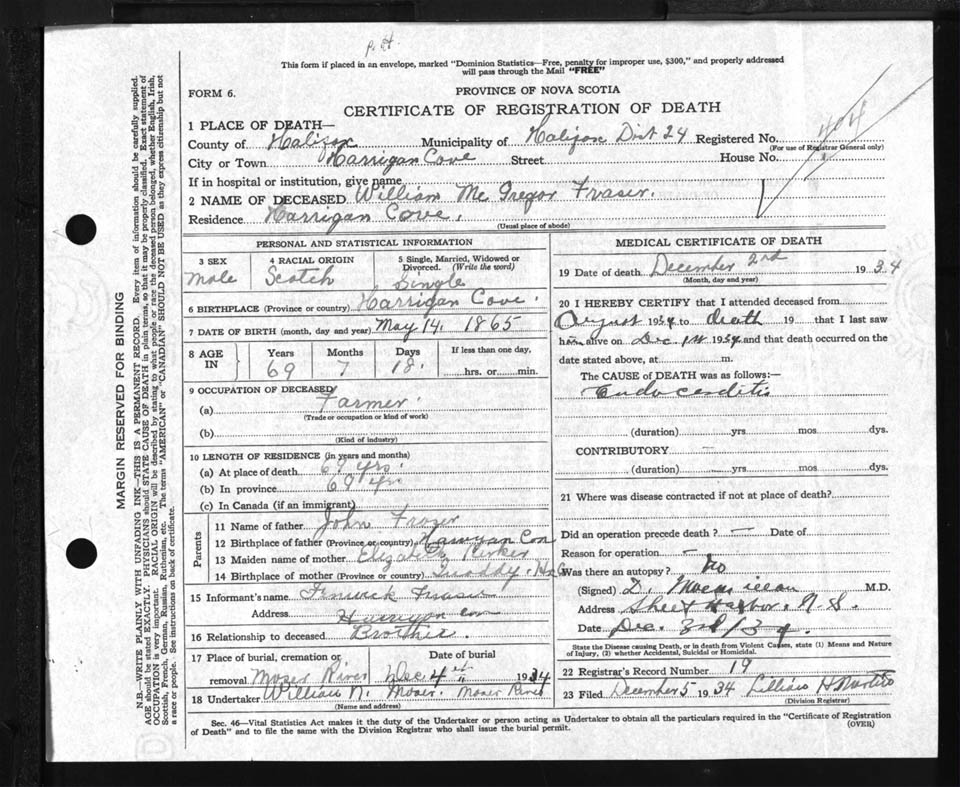 P. H.
This form if placed in an envelope, marked "Dominion Statistics—Free, penalty for improper use, $300," and properly addressed
will pass through the Mail "FREE"
FORM 6.
PROVINCE OF NOVA SCOTIA
CERTIFICATE OF REGISTRATION OF DEATH
1 PLACE OF DEATH—
County of Halifax Municipality of Halifax Dist 24 Registered No. 404
(For use of Registrar General only)
City or Town Harrigan Cove Street House No.
If in hospital or institution, give name
2 NAME OF DECEASED William Mc Gregor Fraser.
Residence Harrigan Cove.
(Usual place of abode)
PERSONAL AND STATISTICAL INFORMATION
3 SEX 4 RACIAL ORIGIN 5 Single, Married, Widowed or
Divorced. (Write the word)
Male Scotch Single
6 BIRTHPLACE (Province or country) Harrigan Cove.
7 DATE OF BIRTH (month, day and year) May 14. 1865
8 AGE IN Years Months Days If less than one day,
69 7 18. hrs. or min.
9 OCCUPATION OF DECEASED
(a) Farmer.
(Trade or occupation or kind of work)
(b)
(Kind of industry)
10 LENGTH OF RESIDENCE (in years and months)
(a) At place of death 69 yrs.
(b) In province 69 yrs
(c) In Canada (if an immigrant)
Parents
11 Name of father John Fraser
12 Birthplace of father (Province or country) Harrigan Cove
13 Maiden name of mother Elizabeth
14 Birthplace of mother (Province or country) Quoddy. Hx Co
15 Informant's name Fenwick Fraser
Address Harrigan Cove
16 Relationship to deceased Brother.
17 Place of burial, cremation or Date of burial
removal Moser River Dec 4th 1934
18 Undertaker William N. Moser. Moser River
(Name and address)
MEDICAL CERTIFICATE OF DEATH
19 Date of death December 2nd 1934
(Month, day and year)
20 I HEREBY CERTIFY that I attended deceased from
August 1934 to death 19 that I last saw
him alive on Dec 1st 1934 and that death occurred on the
date stated above, at m.
The CAUSE OF DEATH was as follows:—
Endocarditis
(duration) yrs mos dys.
CONTRIBUTORY
(duration) yrs mos dys.
21 Where was disease contracted if not at place of death?
Did an operation precede death? — Date of
Reason for operation —
Was there an autopsy? No
(Signed) D. M.D.
Address Sheet Harbor. N. S.
Date Dec. 3rd / 34
State the Disease causing Death, or in death from Violent Causes, state (1) Means and Nature
of Injury, (2) whether Accidental, Suicidal or Homicidal.
22 Registrar's Record Number 19
23 Filed December 5 1934 Lillian H
(Division Registrar)
Sec. 46—Vital Statistics Act makes it the duty of the Undertaker or person acting as Undertaker to obtain all the particulars required in the "Certificate of Registration
of Death" and to file the same with the Division Registrar who shall issue the burial permit.
(OVER)
MARGIN RESERVED FOR BINDING
N.B.—WRITE PLAINLY WITH UNFADING INK—THIS IS A PERMANENT RECORD. Every item of information should be carefully supplied.
AGE should be stated EXACTLY. PHYSICIANS should STATE CAUSE OF DEATH in plain terms, so that it may be properly classified. Exact statement of
OCCUPATION is very important. RACIAL ORIGIN will be described by stating to what people or race the deceased person belonged, whether English, Irish,
Scottish, French, German, Russian, Ruthenian, etc. The terms "AMERICAN" or "CANADIAN" SHOULD NOT BE USED as they express citizenship but not
a race or people. See instructions on back of certificate.